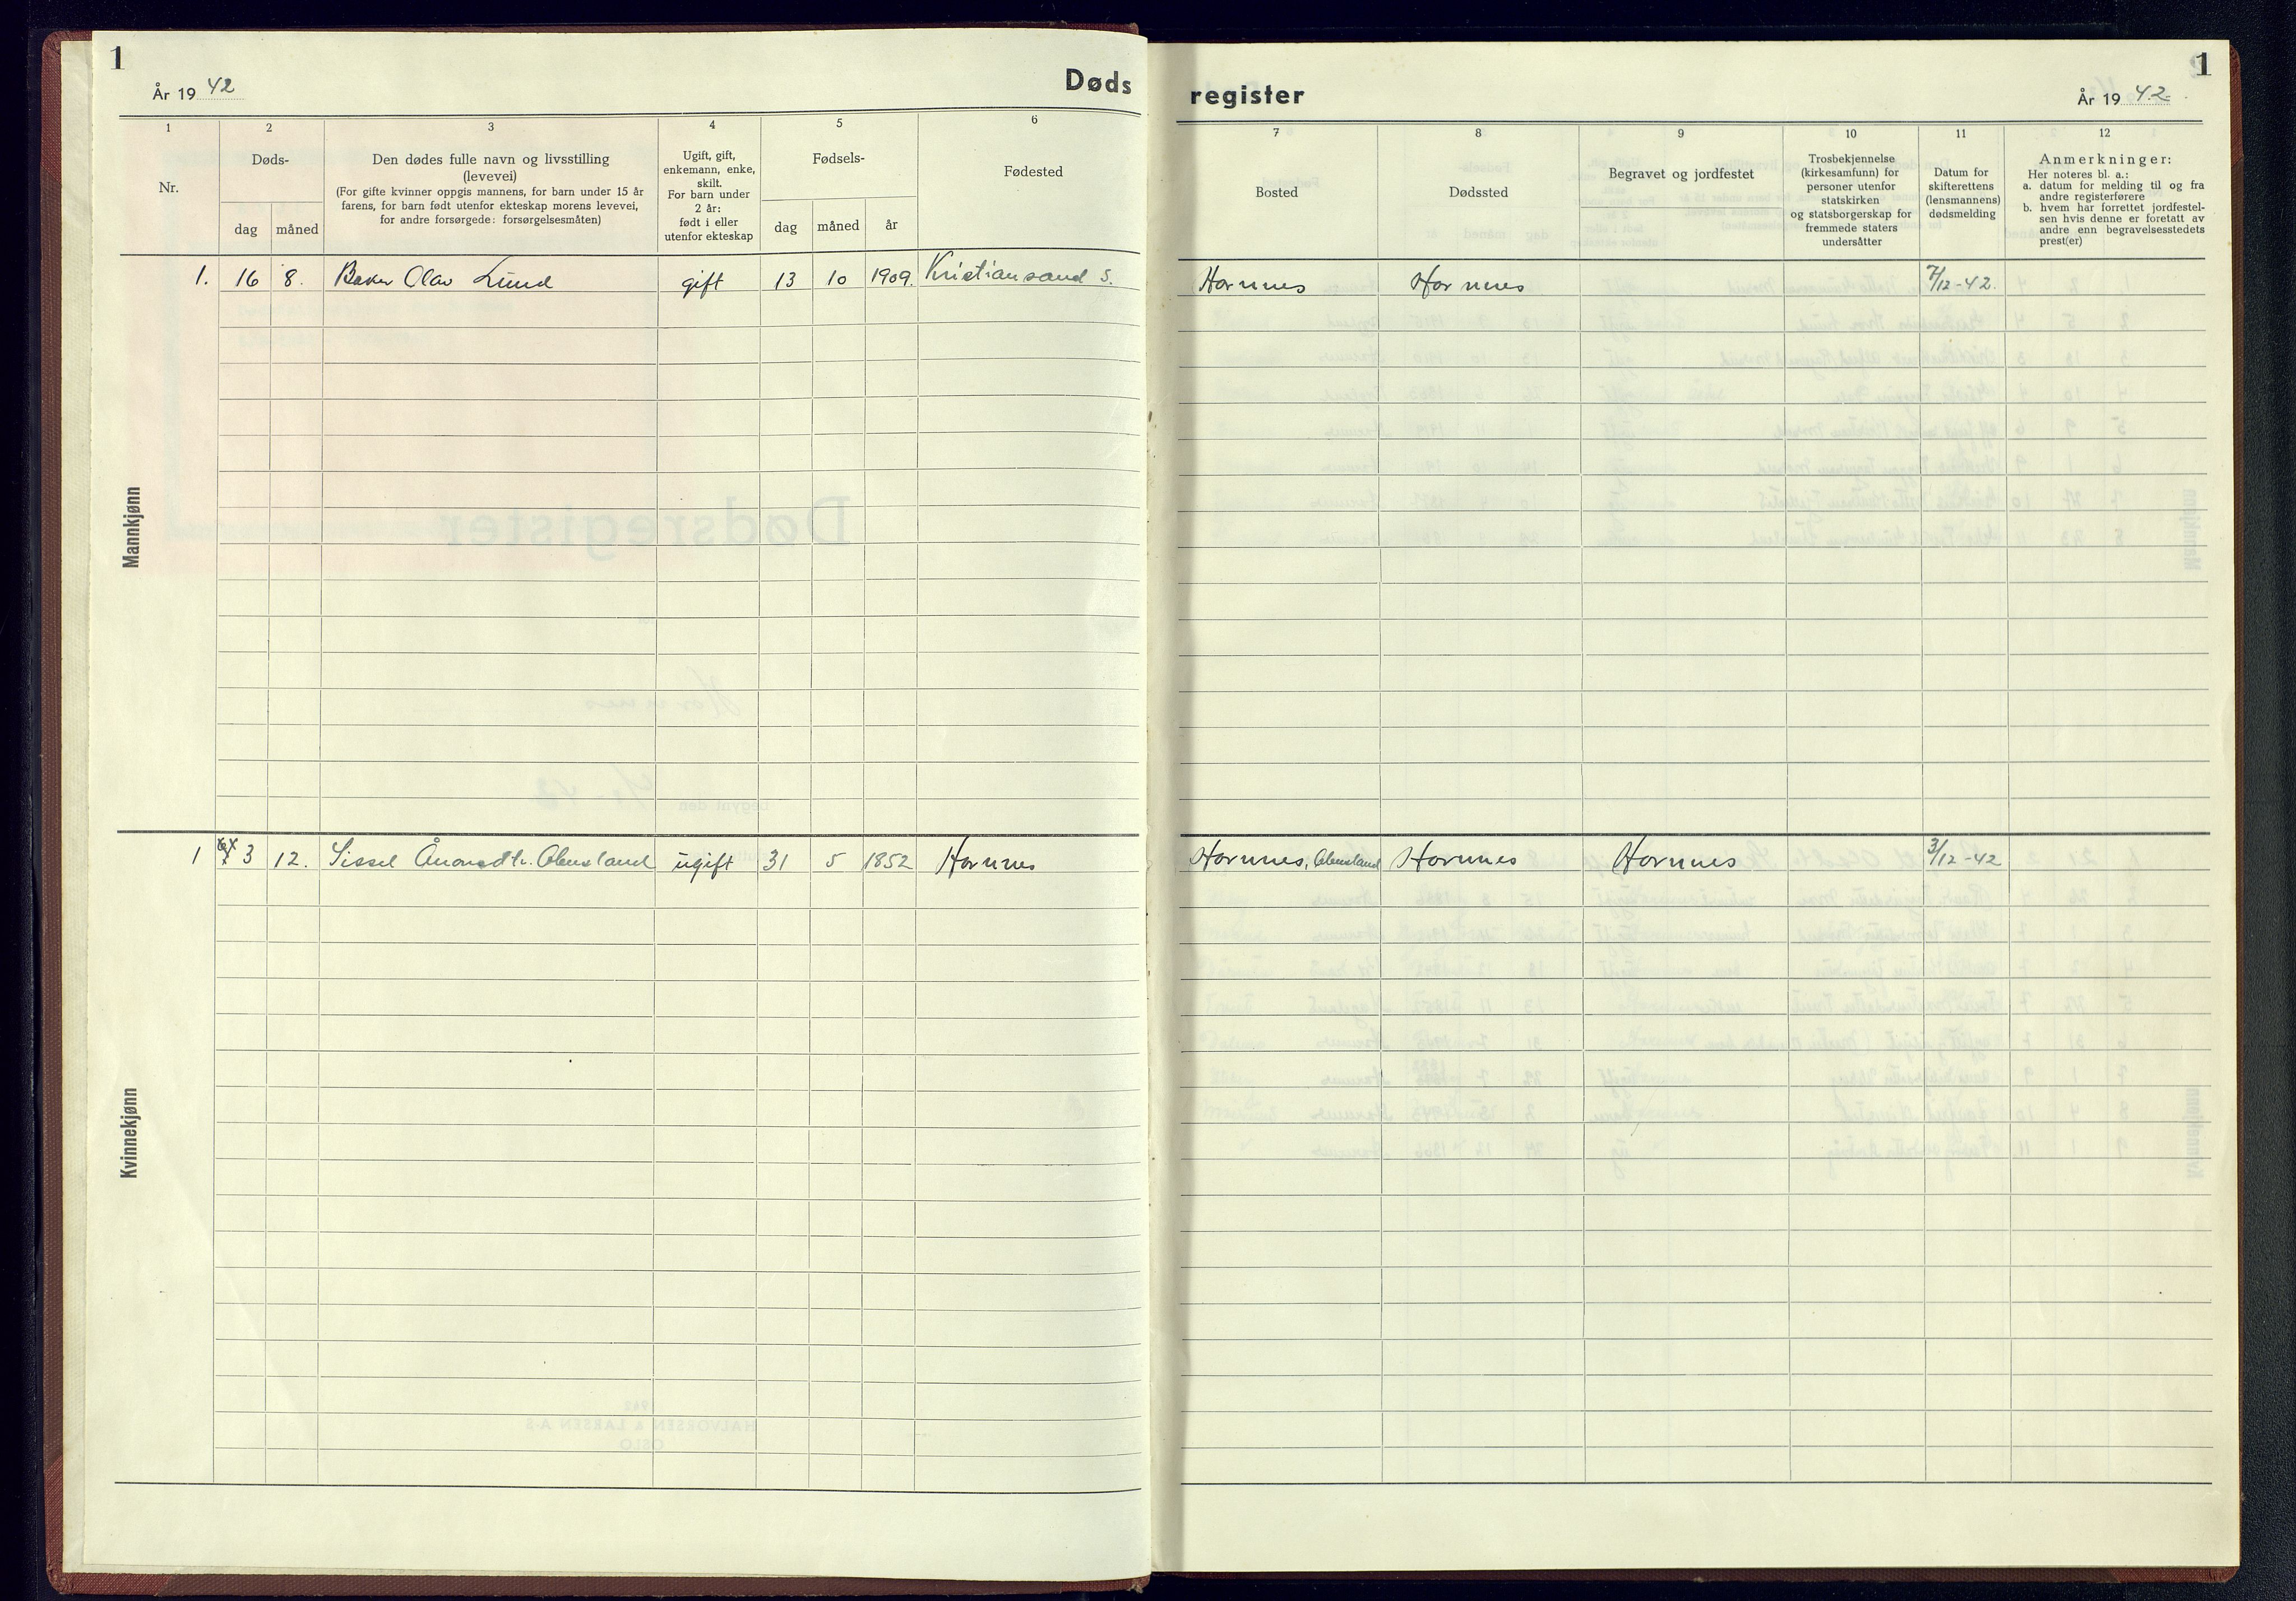 1
År 1942
Døds
1
2
3
4
5
6
Nr.
Døds-
dag
måned
Den dødes fulle navn og livsstilling
(levevei)
(For gifte kvinner oppgis mannens, for barn under 15 år
farens, for barn født utenfor ekteskap morens levevei,
for andre forsørgede: forsørgelsesmåten)
Ugift, gift,
enkemann, enke,
skilt.
For barn under
2 år:
født i eller
utenfor ekteskap
Fødsels-
dag
måned
år
Fødested
Mannkjønn
1. 16 8. Baker Olav Lund gift 13 10 1909. Kristiansand S.
Kvinnekjønn
1 3 12. Sissel Ånonsdtr. Abusland ugift 31 5 1852 Hornnes
register
1
År 1942
7
8
9
10
11
12
Bosted
Dødssted
Begravet og jordfestet
Trosbekjennelse
(kirkesamfunn) for
personer utenfor
statskirken
og statsborgerskap for
fremmede staters
undersåtter
Datum for
skifterettens
(lensmannens)
dødsmelding
Anmerkninger:
Her noteres bl. a.:
a. datum for melding til og fra
andre registerførere
b. hvem har forrettet jordfestel-
sen hvis denne er foretatt av
andre enn begravelsesstedets
prest(er)
Hornnes Hornnes 7/12-42.
Hornnes, Abusland Hornnes Hornnes 3/12-42